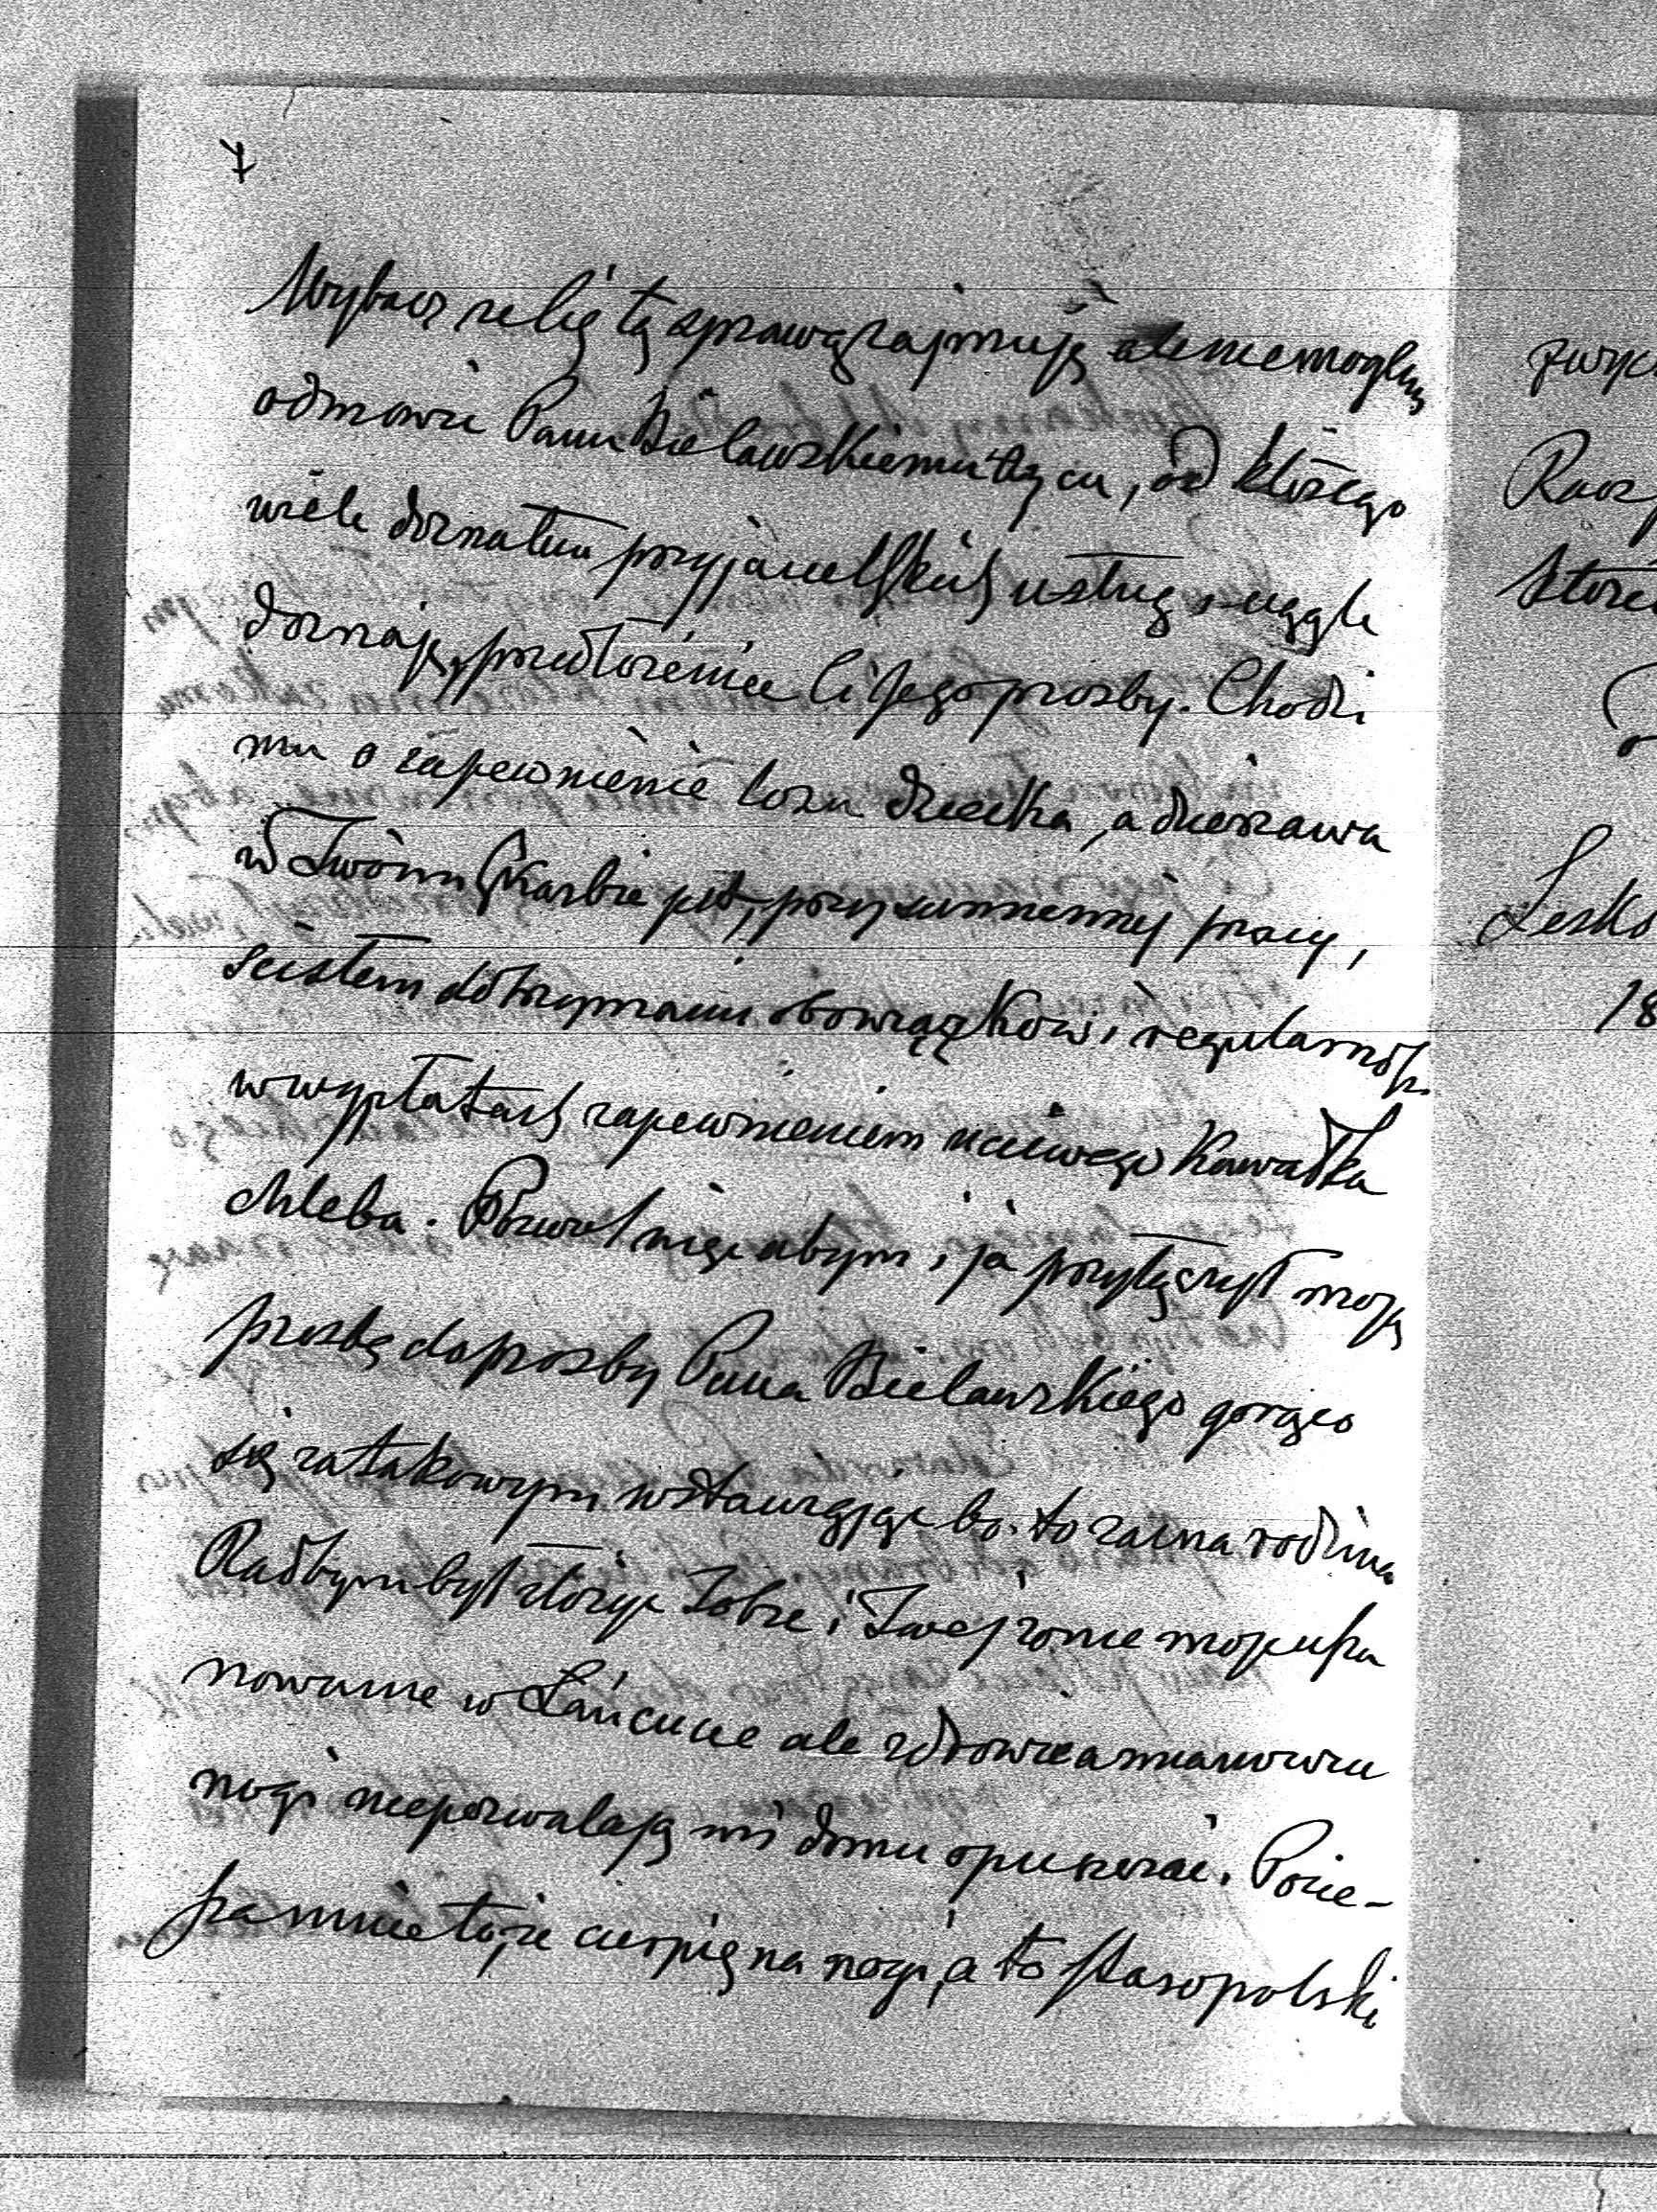 Wybacz że Cię tą sprawą zajmuję ale nie mogłem
odmówić Panu Bielawskiemu Ojcu, od którego
wiele doznałem przyjacielskich usług i ciągle
doznaję, przedłożenia Ci Jego prośby. Chodzi
mu o zapewnienie losu dziecka, a dzierżawa
w Twoim Skarbie jest, przy sumiennej pracy,
ścisłem dotrzymaniu obowiązków i regularności
w wypłatach zapewnieniem uczciwego kawałka
chleba. Pozwól więc abym i ja przyłączył moją
prośbę do prośby Pana Bielawskiego gorąco
się za takowym wstawiając bo to zacna rodzina
Radbym był złożyć Tobie i Twej żonie moje usza
nowanie w Łańcucie ale zdrowie a mianowicie
nogi nie pozwalają mi domu opuszczać. Pocie-
że cierpię na nogi, a to staropolski
zwyc
Racz
Które
Lesko
18